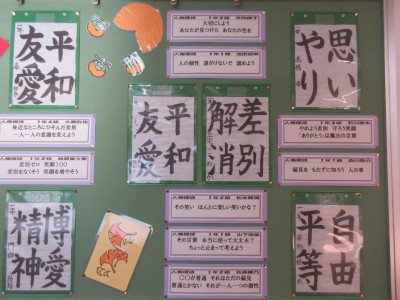 平和
友愛
思い
やり
大切にしよう
あなたが見つけた あなたの色を
人の個性 違がけないで 認めよう
平和
友愛
差別
解消
身近なところにひそんだ差別
一人一人の意識を変えよう
差別ゼロ 笑顔100
差別をなくそう 笑顔を増やそう
やめよう差別 守ろう笑顔
「ありがとう」は魔法の言葉
偏見を もたずに知ろう 人の事
博愛
精神
その笑い ほんとに楽しい笑いかな?
その言葉 本当に使って大丈夫?
ちょっと止まって考えよう
〇〇が普通 それはただの偏見
普通とかない それが一人一つの個性
自由
平等